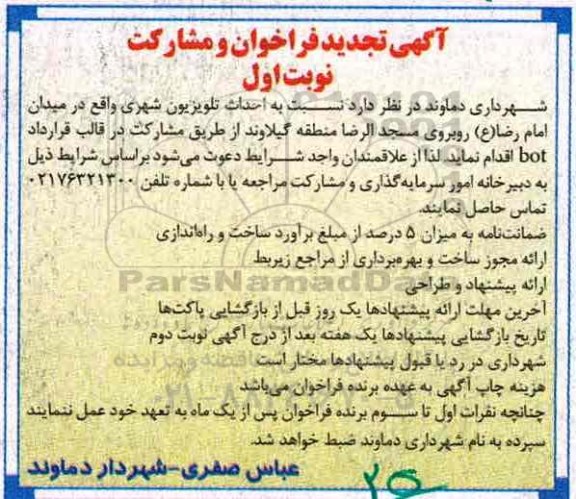 آگهی تجدید فراخوان و مشارکت
نوبت اول
شهرداری دماوند در نظر دارد نسبت به احداث تلویزیون شهری واقع در میدان
امام رضا(ع) روبروی مسجد الرضا منطقه گیلاوند از طریق مشارکت در قالب قرارداد
bot اقدام نماید. لذا از علاقمندان واجد شرایط دعوت می‌شود براساس شرایط ذیل
به دبیرخانه امور سرمایه‌گذاری و مشارکت مراجعه یا با شماره تلفن ۰۲۱۷۶۳۲۱۳۰۰
تماس حاصل نمایند.
ضمانت‌نامه به میزان ۵ درصد از مبلغ برآورد ساخت و راه‌اندازی
ارائه مجوز ساخت و بهره‌برداری از مراجع زیربط
ParsNamadData
ارائه پیشنهاد و طراحی
آخرین مهلت ارائه پیشنهادها یک روز قبل از بازگشایی پاکت‌ها
تاریخ بازگشایی پیشنهادها یک هفته بعد از درج آگهی نوبت دوم
شهرداری در رد یا قبول پیشنهادها مختار است
هزینه چاپ آگهی به عهده برنده فراخوان می‌باشد
چنانچه نفرات اول تا سوم برنده فراخوان پس از یک ماه به تعهد خود عمل ننمایند
سپرده به نام شهرداری دماوند ضبط خواهد شد.
عباس صفری-شهردار دماوند